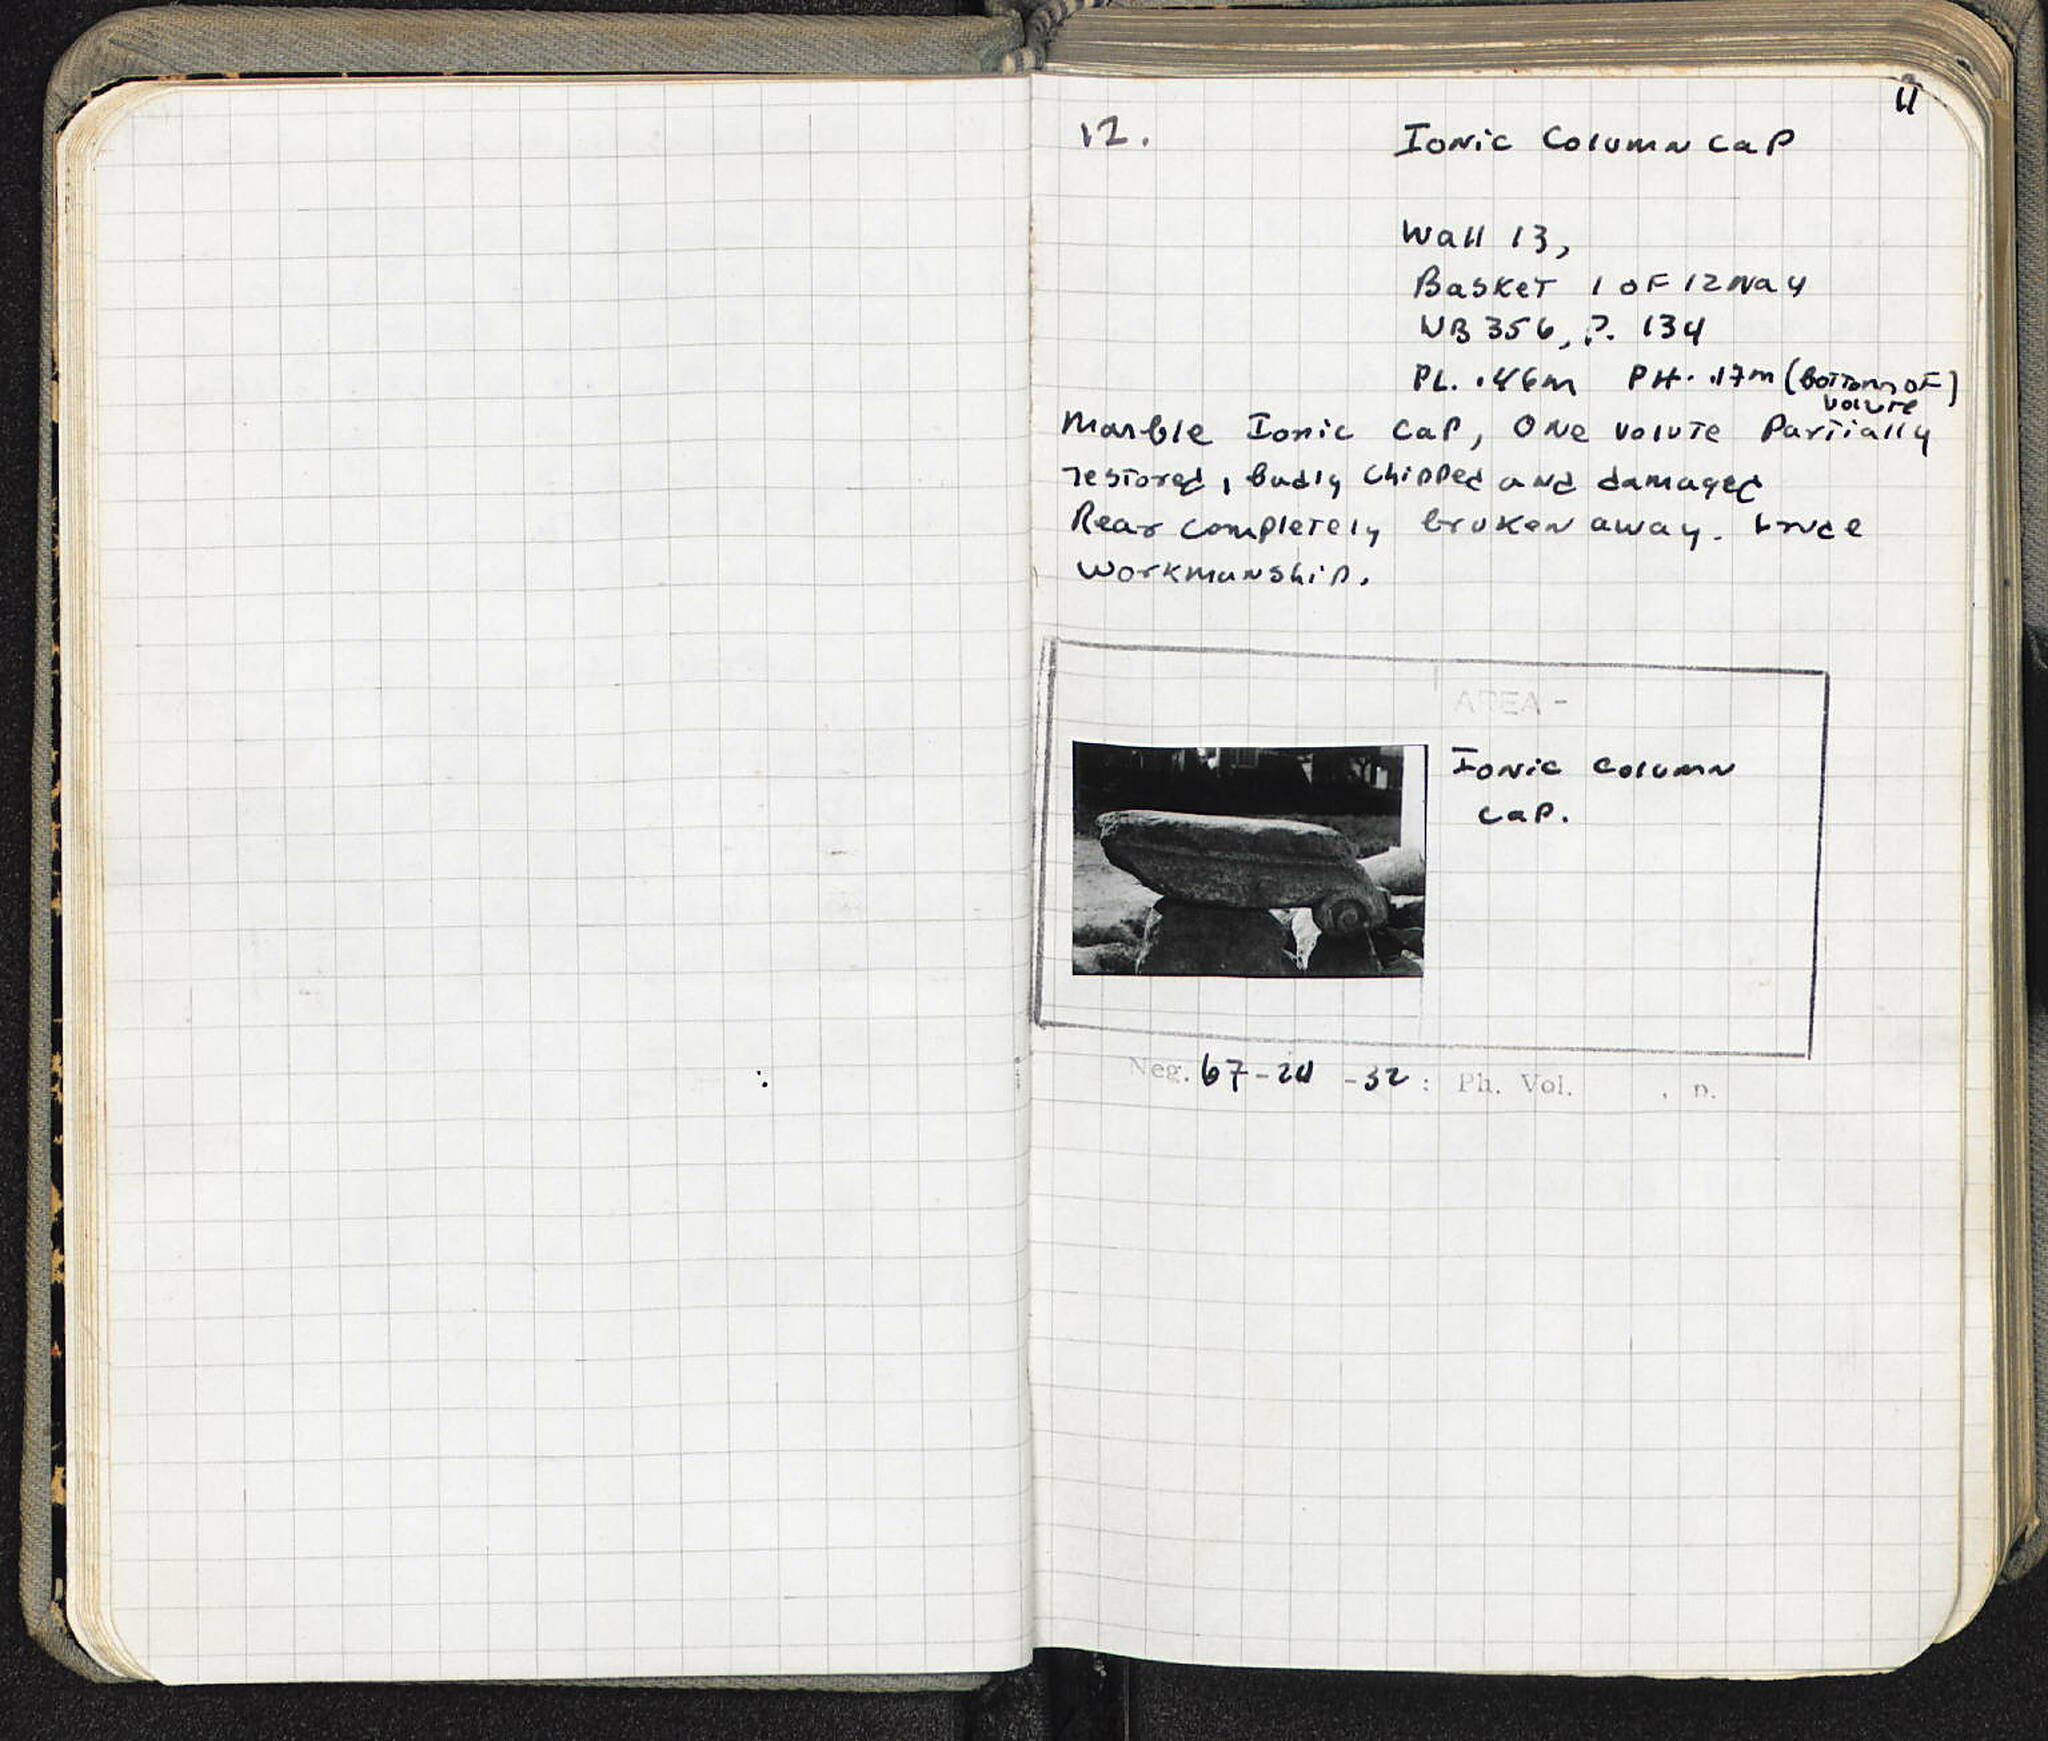 11
12. Ionic Column Cap
Wall 13,
Basket 1 of 12 May
NB 356, P. 134
PL. .46m PH. .17m (bottom of)
volute
Marble Ionic Cap, One volute Partially
restored, badly chipped and damaged
Rear completely broken away.
workmanship.
AREA -
Ionic Column
Cap.
Neg. 67-24 -32 : Ph. Vol. , p.